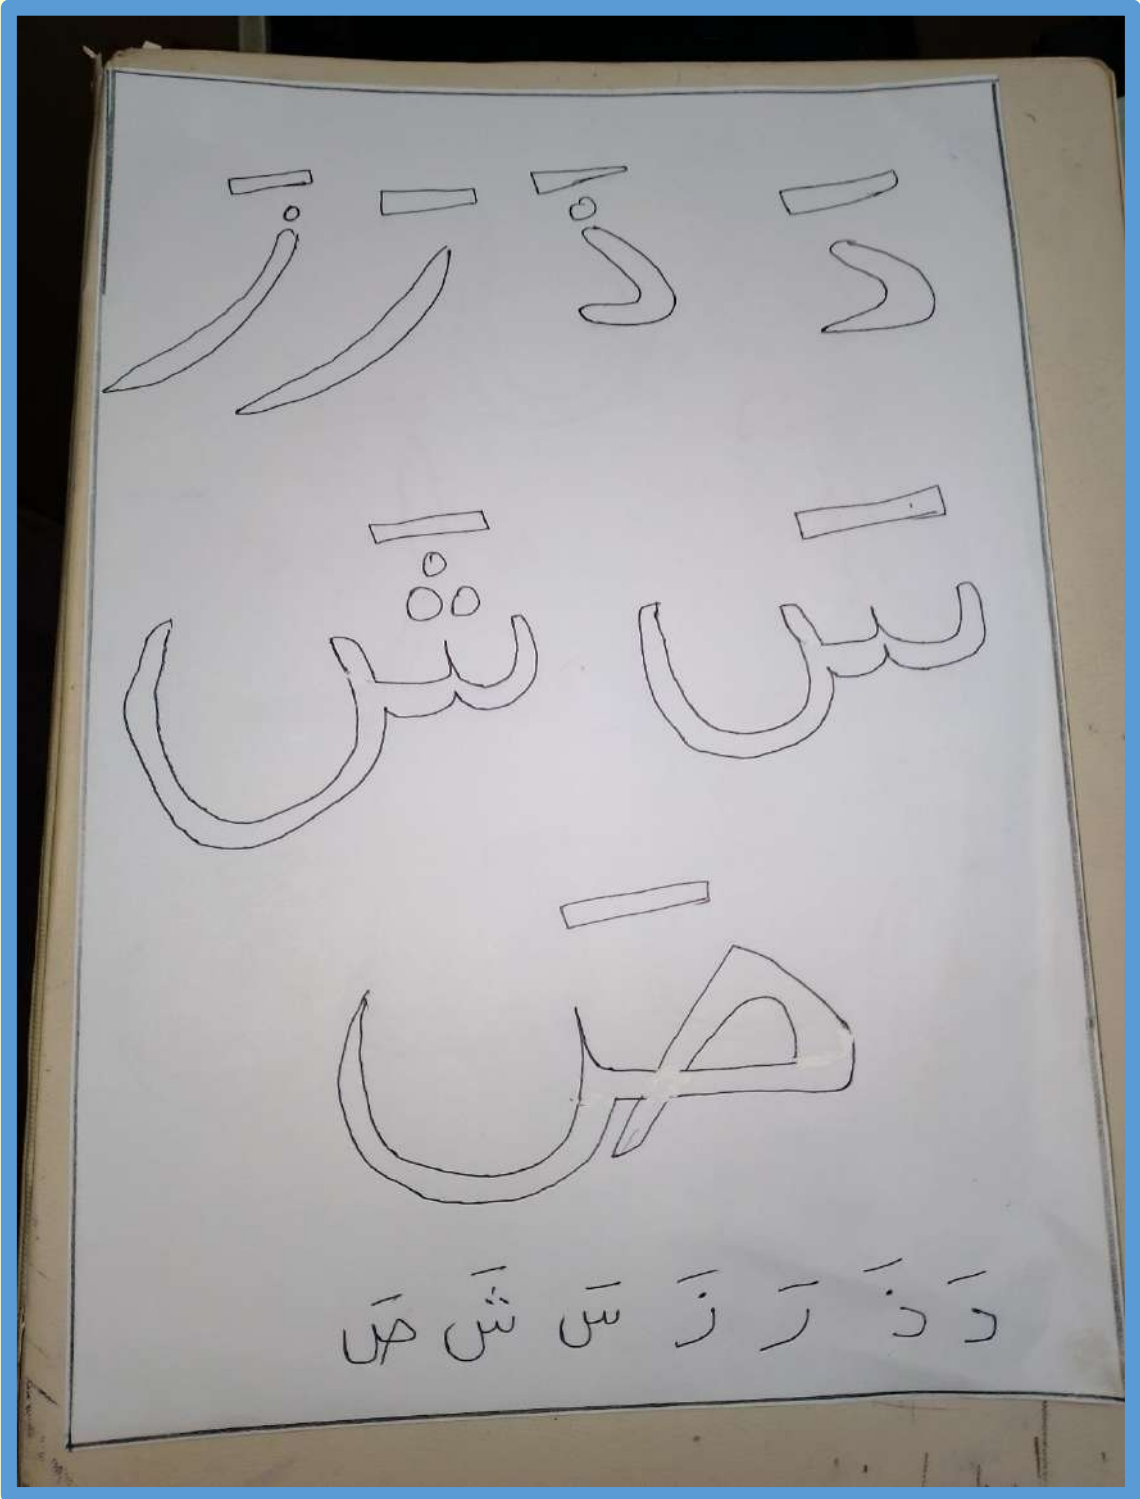 دَ ذَ رَ زَ
سَ شَ
صَ
دَ ذَ رَ زَ سَ شَ صَ